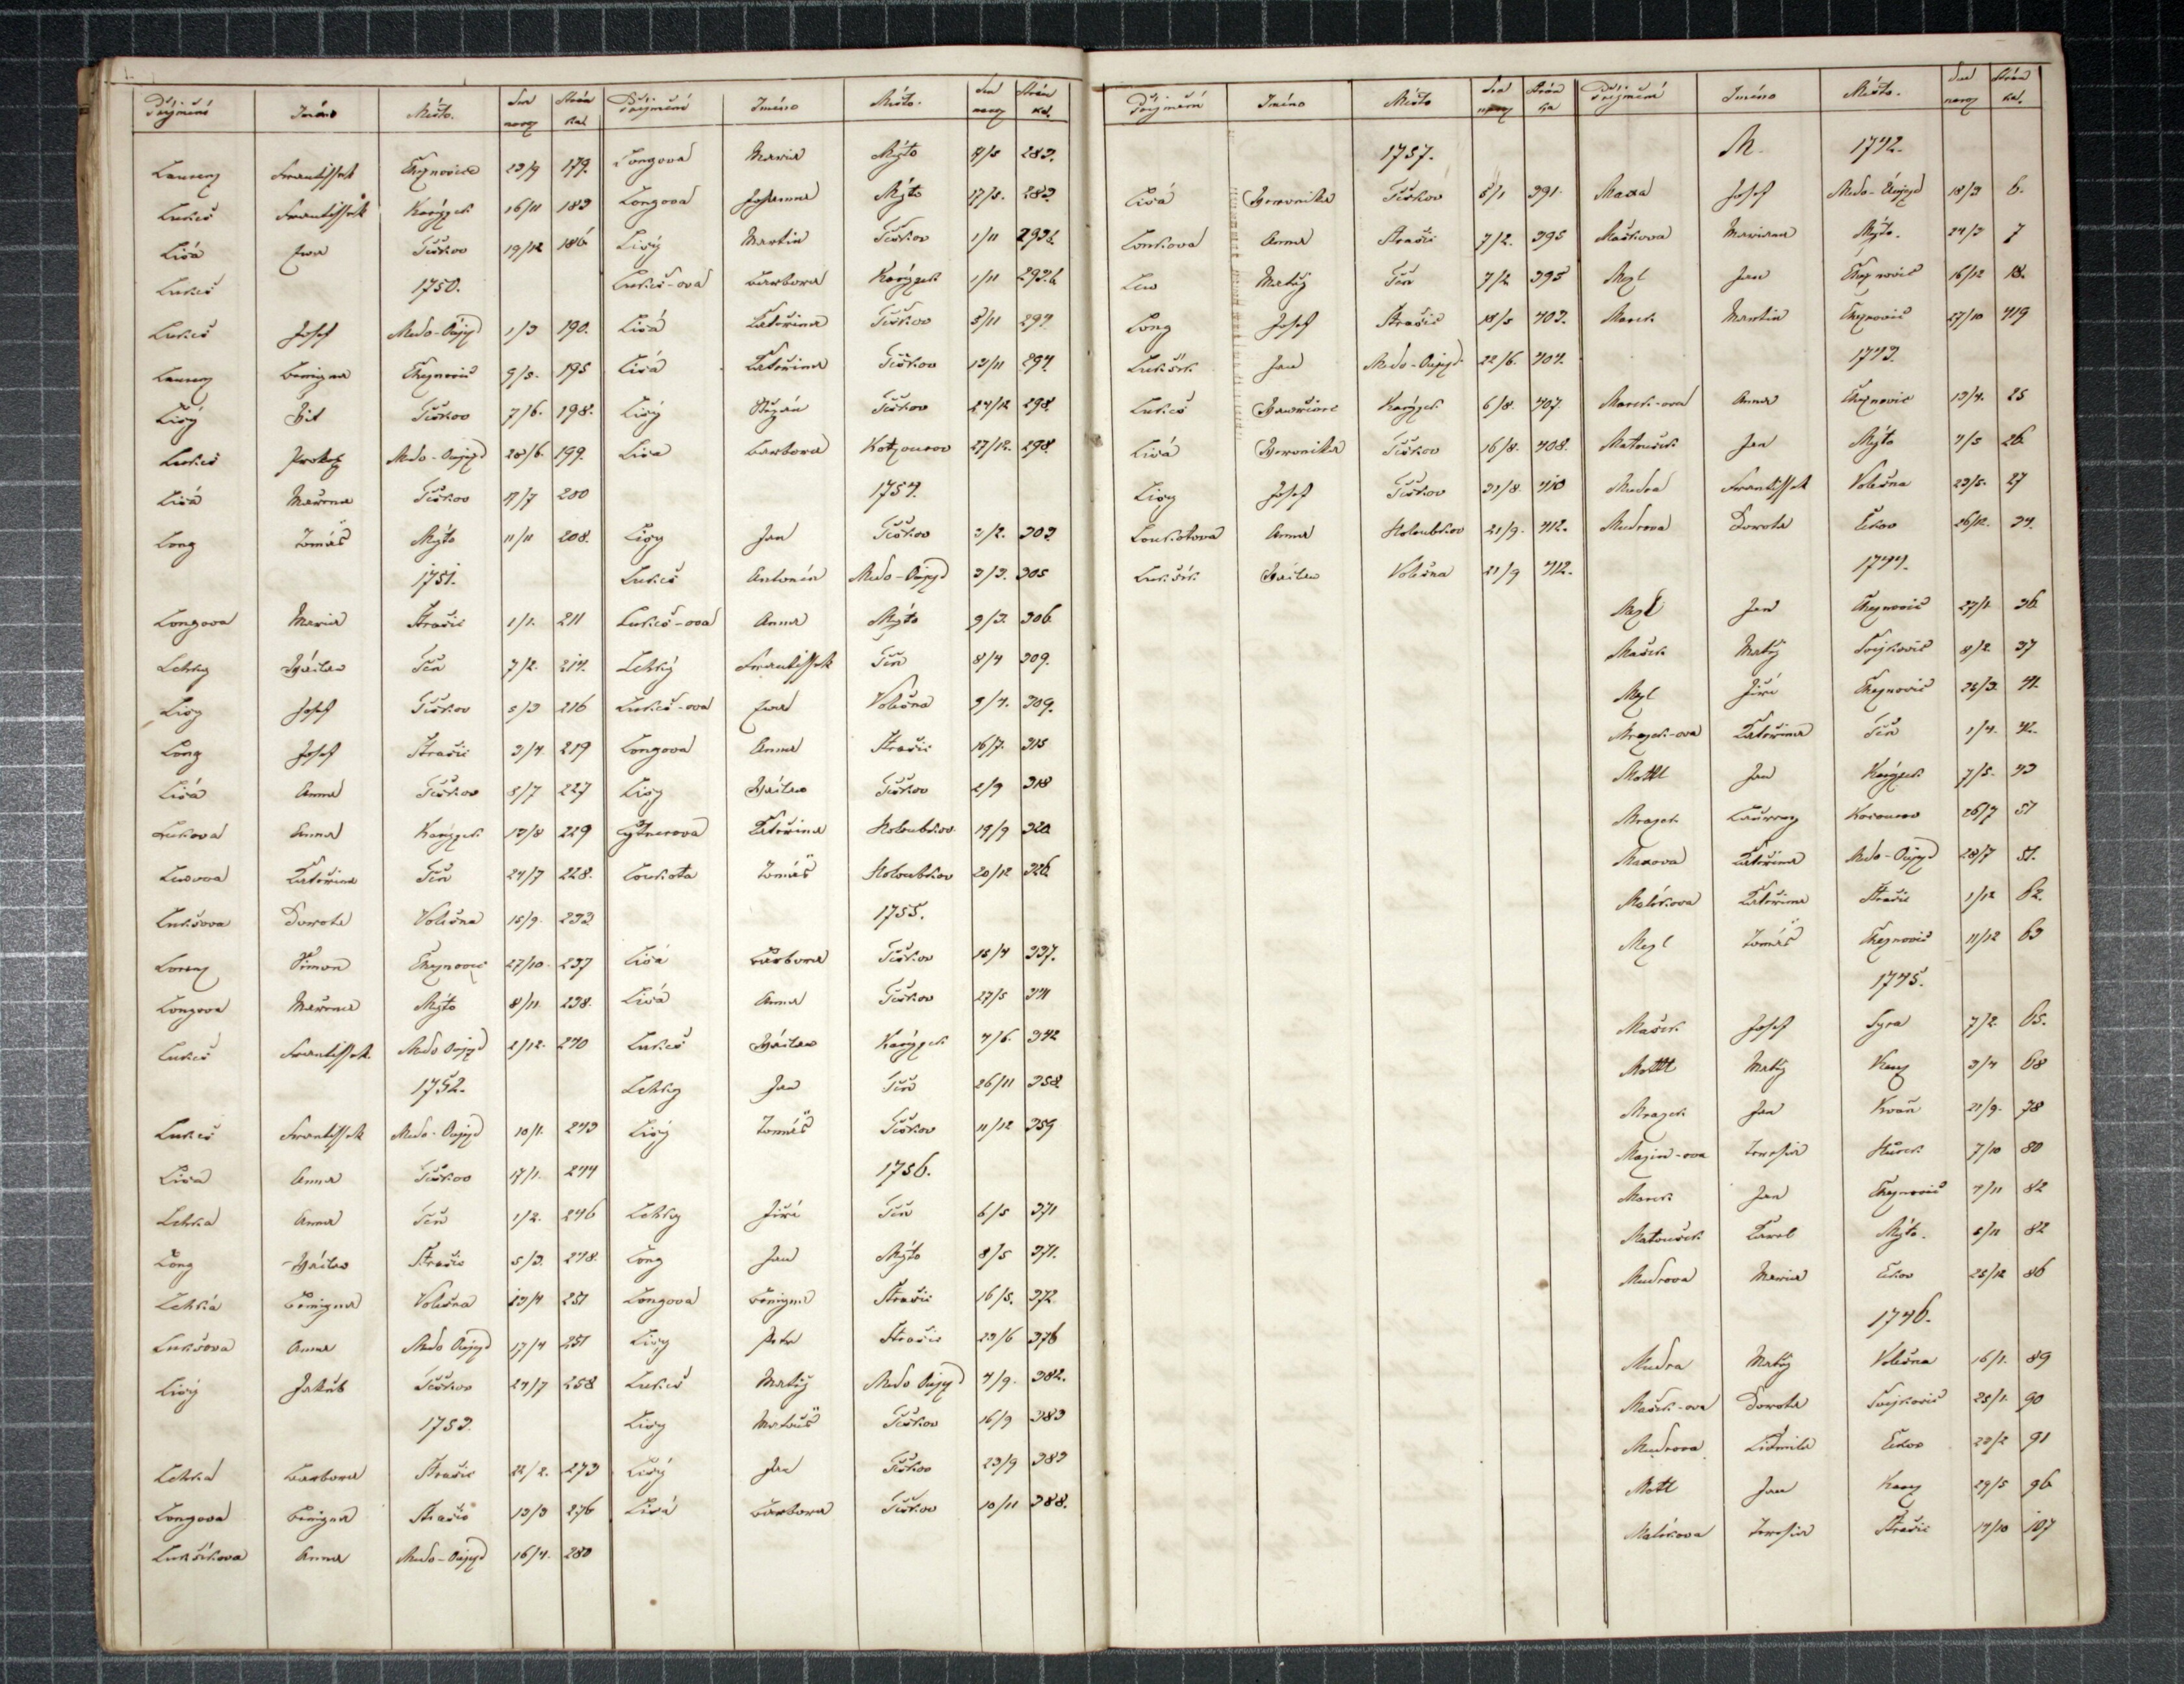 Příjmení Jméno Místo. Den naroz Strán ka.
Laurenz Frantissek Cheznovice 23/9 179.
Lukeš Frantissek Karýzek 16/11 183
Lisá Ewa Těškov 19/12 186
Lukeš 1750.
Lukeš Josef Medo-Oujezd 1/3 190.
Laurenz Benigna Cheznovic 9/5. 195
Lisý Vít Těškov 7/6. 198.
Lukeš Prokop Medo-Oujezd 28/6. 199.
Lisá Mařena Těškov 4/7 200
Long Tomáš Mýto 11/11 208.
1751.
Longova Maria Strašic 1/1. 211
Lehky Václav Těň 7/2. 214.
Lisy Josef Těškov 5/3 216
Long Josef Strašic 3/4. 219
Lisá Anna Těškov 5/7 227
Lukova Anna Karýzek 13/8 229
Lewova Kateřina Těň 24/7 228.
Lukšova Dorota Volešna 15/9. 233
Lorenz Šimon Cheznovic 27/10. 237
Longova Mařena Mýto 8/11. 238.
Lukeš Frantissek Medo Oujezd 2/12. 240
1752.
Lukeš Frantissek Medo-Oujezd 10/1. 243
Lisa Anna Těškov 17/1. 244
Lehka Anna Těň 1/2. 246
Long Václav Strašic 5/3. 248.
Lehká Benigna Volešna 13/4 251
Lukšova Anna Medo Oujezd 17/4 251
Lisý Jakub Těškov 24/7 258
1753.
Lehka Barbora Strašic 22/2. 273
Longova Benigna Strašic 13/3 276
Lukšíkova Anna Medo-Oujezd 16/4. 280
Příjmení Jméno Místo. Den naroz Strán ka.
Longova Maria Mýto 4/5 283.
Longova Johanna Mýto 17/5. 283.
Lisý Martin Těškov 1/11 293b.
Lukeš-ova Barbora Karýzek 1/11 293.b
Lisá Kateřina Těškov 5/11 294.
Lisá Kateřina Těškov 13/11 294.
Lisý Štěpán Těškov 24/12 298.
Lisa Barbora Kotzourov 27/12. 298.
1754.
Lisy Jan Těškov 3/2. 303.
Lukeš Antonín Medo-Oujezd 3/3. 305
Lukeš-ova Anna Mýto 9/3. 306
Lehký Frantissek Těň 8/4 309.
Lukeš-ova Ewa Volešna 9/4. 309.
Longova Anna Strašic 16/7. 315
Lisy Václav Těškov 2/9 318
Kateřina Holoubkov 19/9 320
Loukota Tomáš Holoubkov 20/12 326
1755.
Lisá Barbora Těškov 15/4 337.
Lisá Anna Těškov 27/5 341
Lukeš Václav Karýzek 4/6. 342
Lehky Jan Těň 26/11 358
Lisý Tomáš Těškov 11/12 359
1756.
Lehky Jiří Těň 6/5 371
Long Jan Mýto 8/5 371.
Longova Benigna Strašic 16/5. 372
Lisy Petr Strašic 23/6 376
Lukeš Matěj Medo Oujezd 4/9. 382.
Lisy Matouš Těškov 16/9 383
Lisý Jan Těškov 23/9 383
Lisá Barbora Těškov 10/11 388.
Příjmení Jméno Místo Den naroz Strán ka
1757.
Lisá Veronika Těškov 5/1 391.
Lonkova Anna Strašic 7/2. 395
Lew Matěj Těň 7/2 395
Long Josef Strašic 18/5 403.
Lukšík Jan Medo-Oujezd 22/6. 404.
Lukeš Vawřinec Karýzek 6/8. 407.
Lisá Veronika Těškov 16/8. 408.
Lisy Josef Těškov 31/8. 410
Loukotova Anna Holoubkov 21/9. 412.
Lukšík Václav Volešna 21/9 412.
Příjmení Jméno Místo. Den naroz Strán ka.
M. 1742.
Maxa Josef Medo-Oujezd 18/3 6.
Maškova Mariana Mýto. 24/3 7
Mezl Jan Cheznovic 16/12 18.
Marek Martin Cheznovic 27/10 419
1743.
Marek-ova Anna Cheznovic 13/4. 25
Matoušek Jan Mýto 4/5 26.
Mudra Frantissek Volešna 23/5. 27
Mudrova Dorota Cekov 26/12. 34.
1744.
Mezl Jan Cheznovic 27/1. 36
Mašek Matěj Svejkovic 8/2 37
Mezl Jiří Cheznovic 25/3. 41.
Mrazek-ova Kateřina Těň 1/4. 42.
Mottl Jan Karýzek 7/5. 43
Mrazek Laurenz Kocourov 26/7 51
Maxova Kateřina Medo-Oujezd 28/7 51.
Malíkova Kateřina Strašic 1/12 62.
Mezl Tomáš Cheznovic 11/12 63
1745.
Mašek Josef Syra 7/2. 65.
Mottl Matěj 3/4 68
Mrazek Jan Kvaň 21/9. 78
Mazin-ova Teresia Hůrek 7/10 80
Marek Jan Cheznovic 4/11 82
Matoušek Karel Mýto. 6/11 82
Mudrova Maria Cekov 25/12 86
1746.
Mudra Matěj Volešna 16/1. 89
Mašek-ova Dorota Svejkovic 25/1. 90
Mudrova Lidmila Cekov 23/2 91
Mottl Jan 29/5 96
Malíkova Teresia Strašic 14/10 107